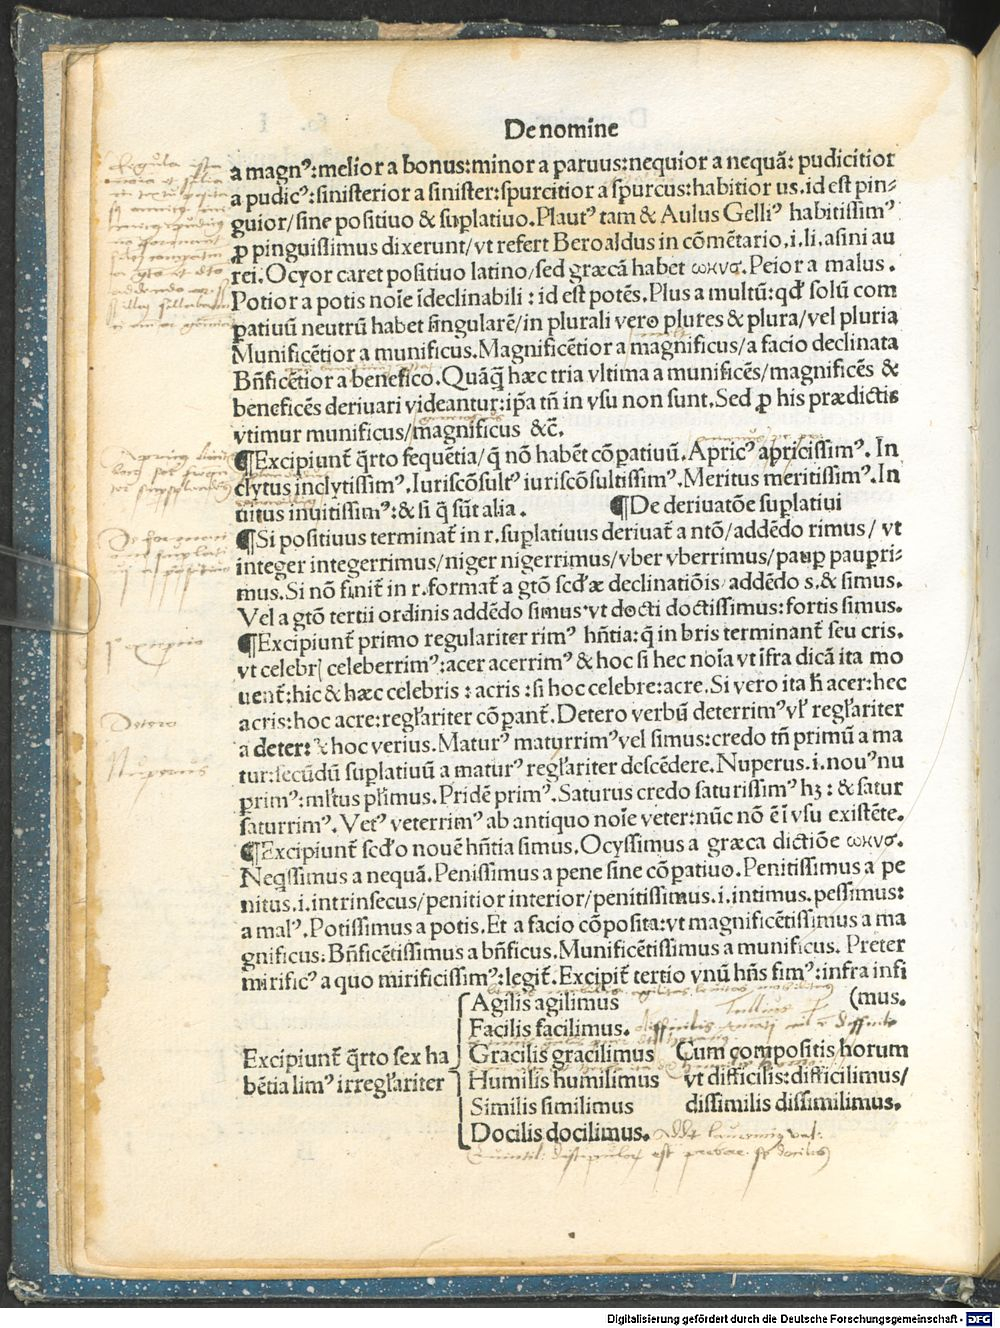 De nomine
a magnꝰ:melior a bonus:minor a paruus:nequior a nequā: pudicitior
a pudicꝰ:sinisterior a sinister:spurcitior a spurcus:habitior us.id est pin⸗
guior/sine positiuo & suplatiuo.Plautꝰ tam & Aulus Gelliꝰ habitissimꝰ
ꝓ pinguissimus dixerunt/vt refert Beroaldus in cōmētario.i.li.asini au
rei.Ocyor caret positiuo latino/sed græcā habet ωκυσ.Peior a malus.
Potior a potis noīe īdeclinabili : id est potēs.Plus a multū:qđ solū com
patiuū neutrū habet singularē/in plurali vero plures & plura/vel pluria
Munificētior a munificus.Magnificētior a magnificus/a facio declinata
Bn̄ficētior a benefico.Quāq̄ hæc tria vltima a munificēs/magnificēs &
beneficēs deriuari videantur:ip̄a tn̄ in vsu non sunt.Sed ꝓ his prædictis
vtimur munificus/magnificus &c̄.
¶Excipiunt̄ q̄rto sequētia/q̄ nō habēt cōpatiuū.Apricꝰ apricissimꝰ. In
clytus inclytissimꝰ.Iuriscōsultꝰ iuriscōsultissimꝰ.Meritus meritissimꝰ.In
uitus inuitissimꝰ:& si q̄ sūt alia. ¶De deriuatōe suplatiui
¶Si positiuus terminat̄ in r.suplatiuus deriuat̄ a ntō/addēdo rimus/ vt
integer integerrimus/niger nigerrimus/vber vberrimus/paup̱ paup̱ri⸗
mus.Si nō finit̄ in r.format̄ a gtō scđæ declinatiōis/addēdo s.& simus.
Vel a gtō tertii ordinis addēdo simus·vt docti doctissimus:fortis simus.
¶Excipiunt̄ primo regulariter rimꝰ hn̄tia:q̄ in bris terminant̄ seu cris.
vt celebr celeberrimꝰ:acer acerrimꝰ & hoc si hec noīa vt īfra dicā ita mo
uent̄:hic & hæc celebris : acris : si hoc celebre:acre.Si vero ita ħ acer:hec
acris:hoc acre:regl̄ariter cōpant̄.Detero verbū deterrimꝰ vl̄ regl̄ariter
a deter: & hoc verius.Maturꝰ maturrimꝰ vel simus:credo tn̄ primū a ma
tur:secūdū suplatiuū a maturꝰ regl̄ariter descēdere.Nuperus.i.nouꝰ nu
p̱rimꝰ:ml̄tus pl̄imus.Pridē primꝰ.Saturus credo saturissimꝰ hꝫ : & satur
saturrimꝰ.Vetꝰ veterrimꝰ ab antiquo noīe veter:nūc nō ē ī vsu existēte.
¶Excipiunt̄ scđo nouē hn̄tia simus.Ocyssimus a græca dictiōe ωκυσ.
Neqssimus a nequā.Penissimus a pene sine cōpatiuo.Penitissimus a pe
nitus.i.intrinsecus/penitior interior/penitissimus.i.intimus.pessimus:
a malꝰ.Potissimus a potis.Et a facio cōposita:vt magnificētissimus a ma
gnificus:Bn̄ficētissimus a bn̄ficus.Munificētissimus a munificus. Preter
mirificꝰ a quo mirificissimꝰ:legit̄.Excipit̄ tertio vnū hn̄s simꝰ:infra infi
(mus.
Excipiunt̄ q̄rto sex ha
bētia limꝰ irregl̄ariter
Agilis agilimus
Facilis facilimus.
Gracilis gracilimus Cum compositis horum
Humilis humilimus vt difficilis:difficilimus/
Similis similimus dissimilis dissimilimus.
Docilis docilimus.
Detero
Nuperus
Digitalisierung gefördert durch die Deutsche Forschungsgemeinschaft - DFG